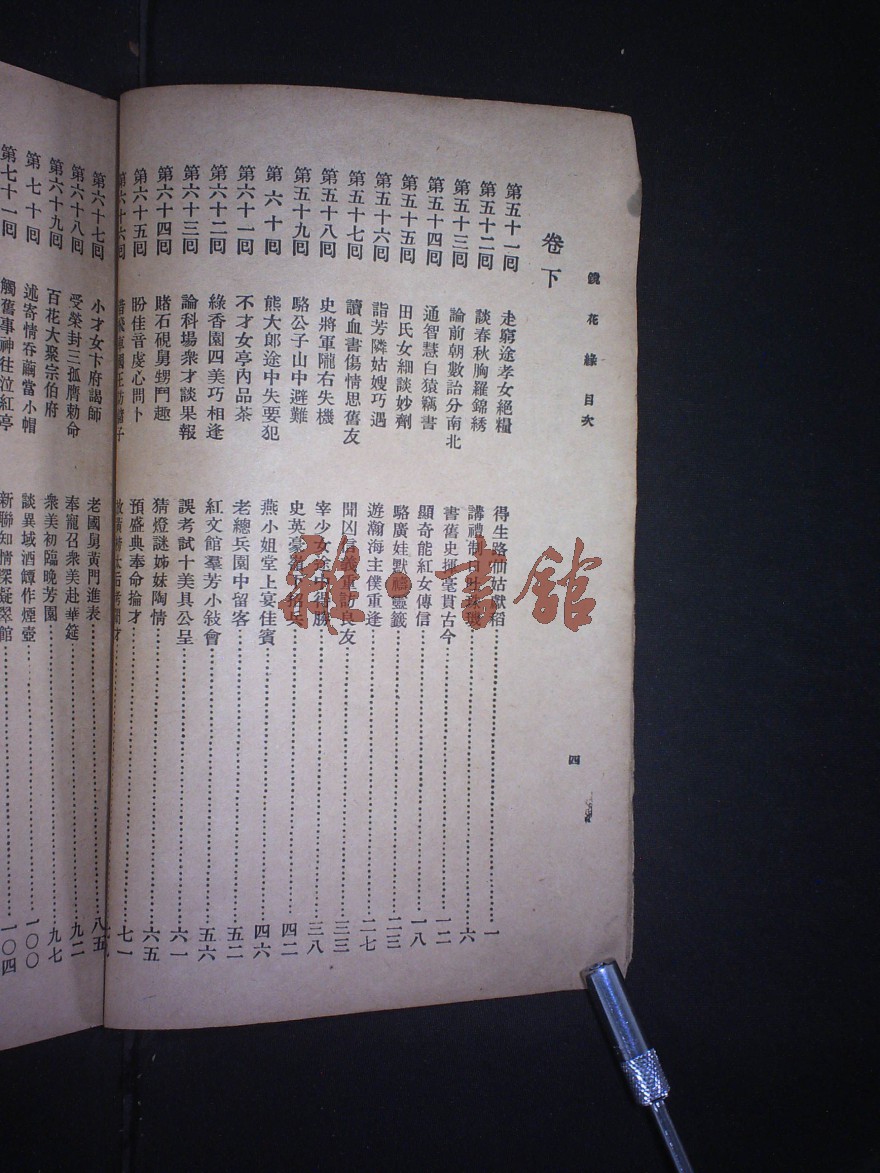 鏡花緣目次
四
卷下
第五十一回 走窮途孝女絕糧 得生路仙姑獻稻 一
第五十二回 談春秋胸羅錦綉 講禮制口吐 六
第五十三回 論前朝數語分南北 書舊史揮毫貫古今 一二
第五十四回 通智慧白猿竊書 顯奇能紅女傳信 一八
第五十五回 田氏女細談妙劑 駱廣娃默禱靈籤 二三
第五十六回 詣芳隣姑嫂巧遇 遊瀚海主僕重逢 二七
第五十七回 讀血書傷情思舊友 聞凶信義重訪良友 三三
第五十八回 史將軍隴右失機 宰少女途中得勝 三八
第五十九回 駱公子山中避難 史英豪 下招兵 四二
第六十回 熊大郎途中失要犯 燕小姐堂上宴佳賓 四六
第六十一回 不才女亭內品茶 老總兵園中留客 五二
第六十二回 綠香園四美巧相逢 紅文館羣芳小敍會 五六
第六十三回 論科場衆才談果報 誤考試十美具公呈 六一
第六十四回 賭石硯舅甥鬥趣 猜燈謎姊妹陶情 六五
第六十五回 盼佳音虔心問卜 預盛典奉命掄才 七一
第六十六回
第六十七回 小才女卞府謁師 老國舅黃門進表 八五
第六十八回 受榮封三孤膺勅命 奉寵召衆美赴華筵 九二
第六十九回 百花大聚宗伯府 衆美初臨晚芳園 九七
第七十回 述奇情吞繭當小帽 談異域酒罈作煙壺 一〇〇
第七十一回 觸舊事神往泣紅亭 新聯知情深凝翠館 一〇四
雜·書館